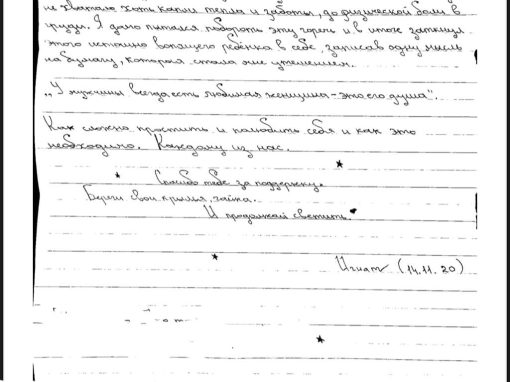 не хватало хоть капли тепла и заботы, до физической боли в
груди. Я долго пытался побороть эту горечь и в итоге заткнул
этого истошно вопящего ребёнка в себе, записав одну мысль
на бумагу, которая стала мне утешением.
„У мужчины всегда есть любимая женщина - это его душа".
Как сложно простить и полюбить себя и как это
необходимо. Каждому из нас.
Спасибо тебе за поддержку.
Береги свои крылья, зайка.
И продолжай светить.
Игнат (14.11.20)